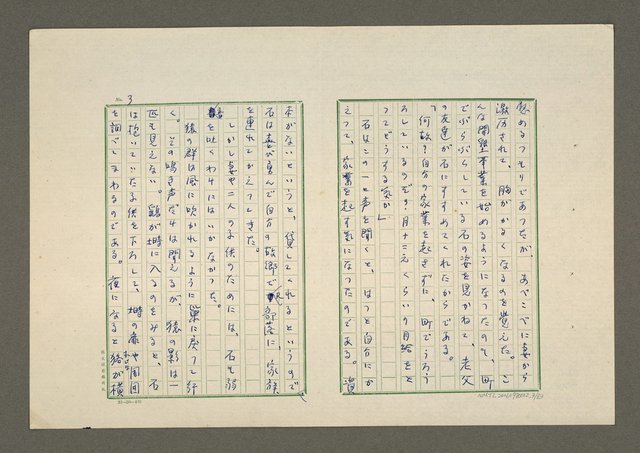 慰めるつもりであつたが、あべこべに妻から
激厉されて、胸がかるくなるのを覚えた。こ
んな開墾事業を始めるようになつたのも、町
でぶらぶらしている石の姿を見かねて、老父
の友達が石にすすめてくれたからである。
「何故？自分の家業を起さずに、町でうろう
ろしているのだ？月十二えんくらいの月給をと
つてどうする気か」
石はこの一と声を聞くと、はつと自分にか
えつて、家業を起す気になつたのである。資
本がないというと、貸してくれるというので、
石は喜び勇んで自分の故郷で部落に、家族
を連れてかえつてきた。
しかし妻や二人の子供のためには、石も弱
音を吐くわけにはいかなかつた。
猿の群は風に吹かれるように巣に戻つて行
く。その鳴き声だけは聞えるが、猿の影は一
匹も見えない。鶏が塒に入るのをみると、石
は抱いていた子供を下ろして、塒の扉や周囲
を調べまわるのである。夜になると
が横
No. 3